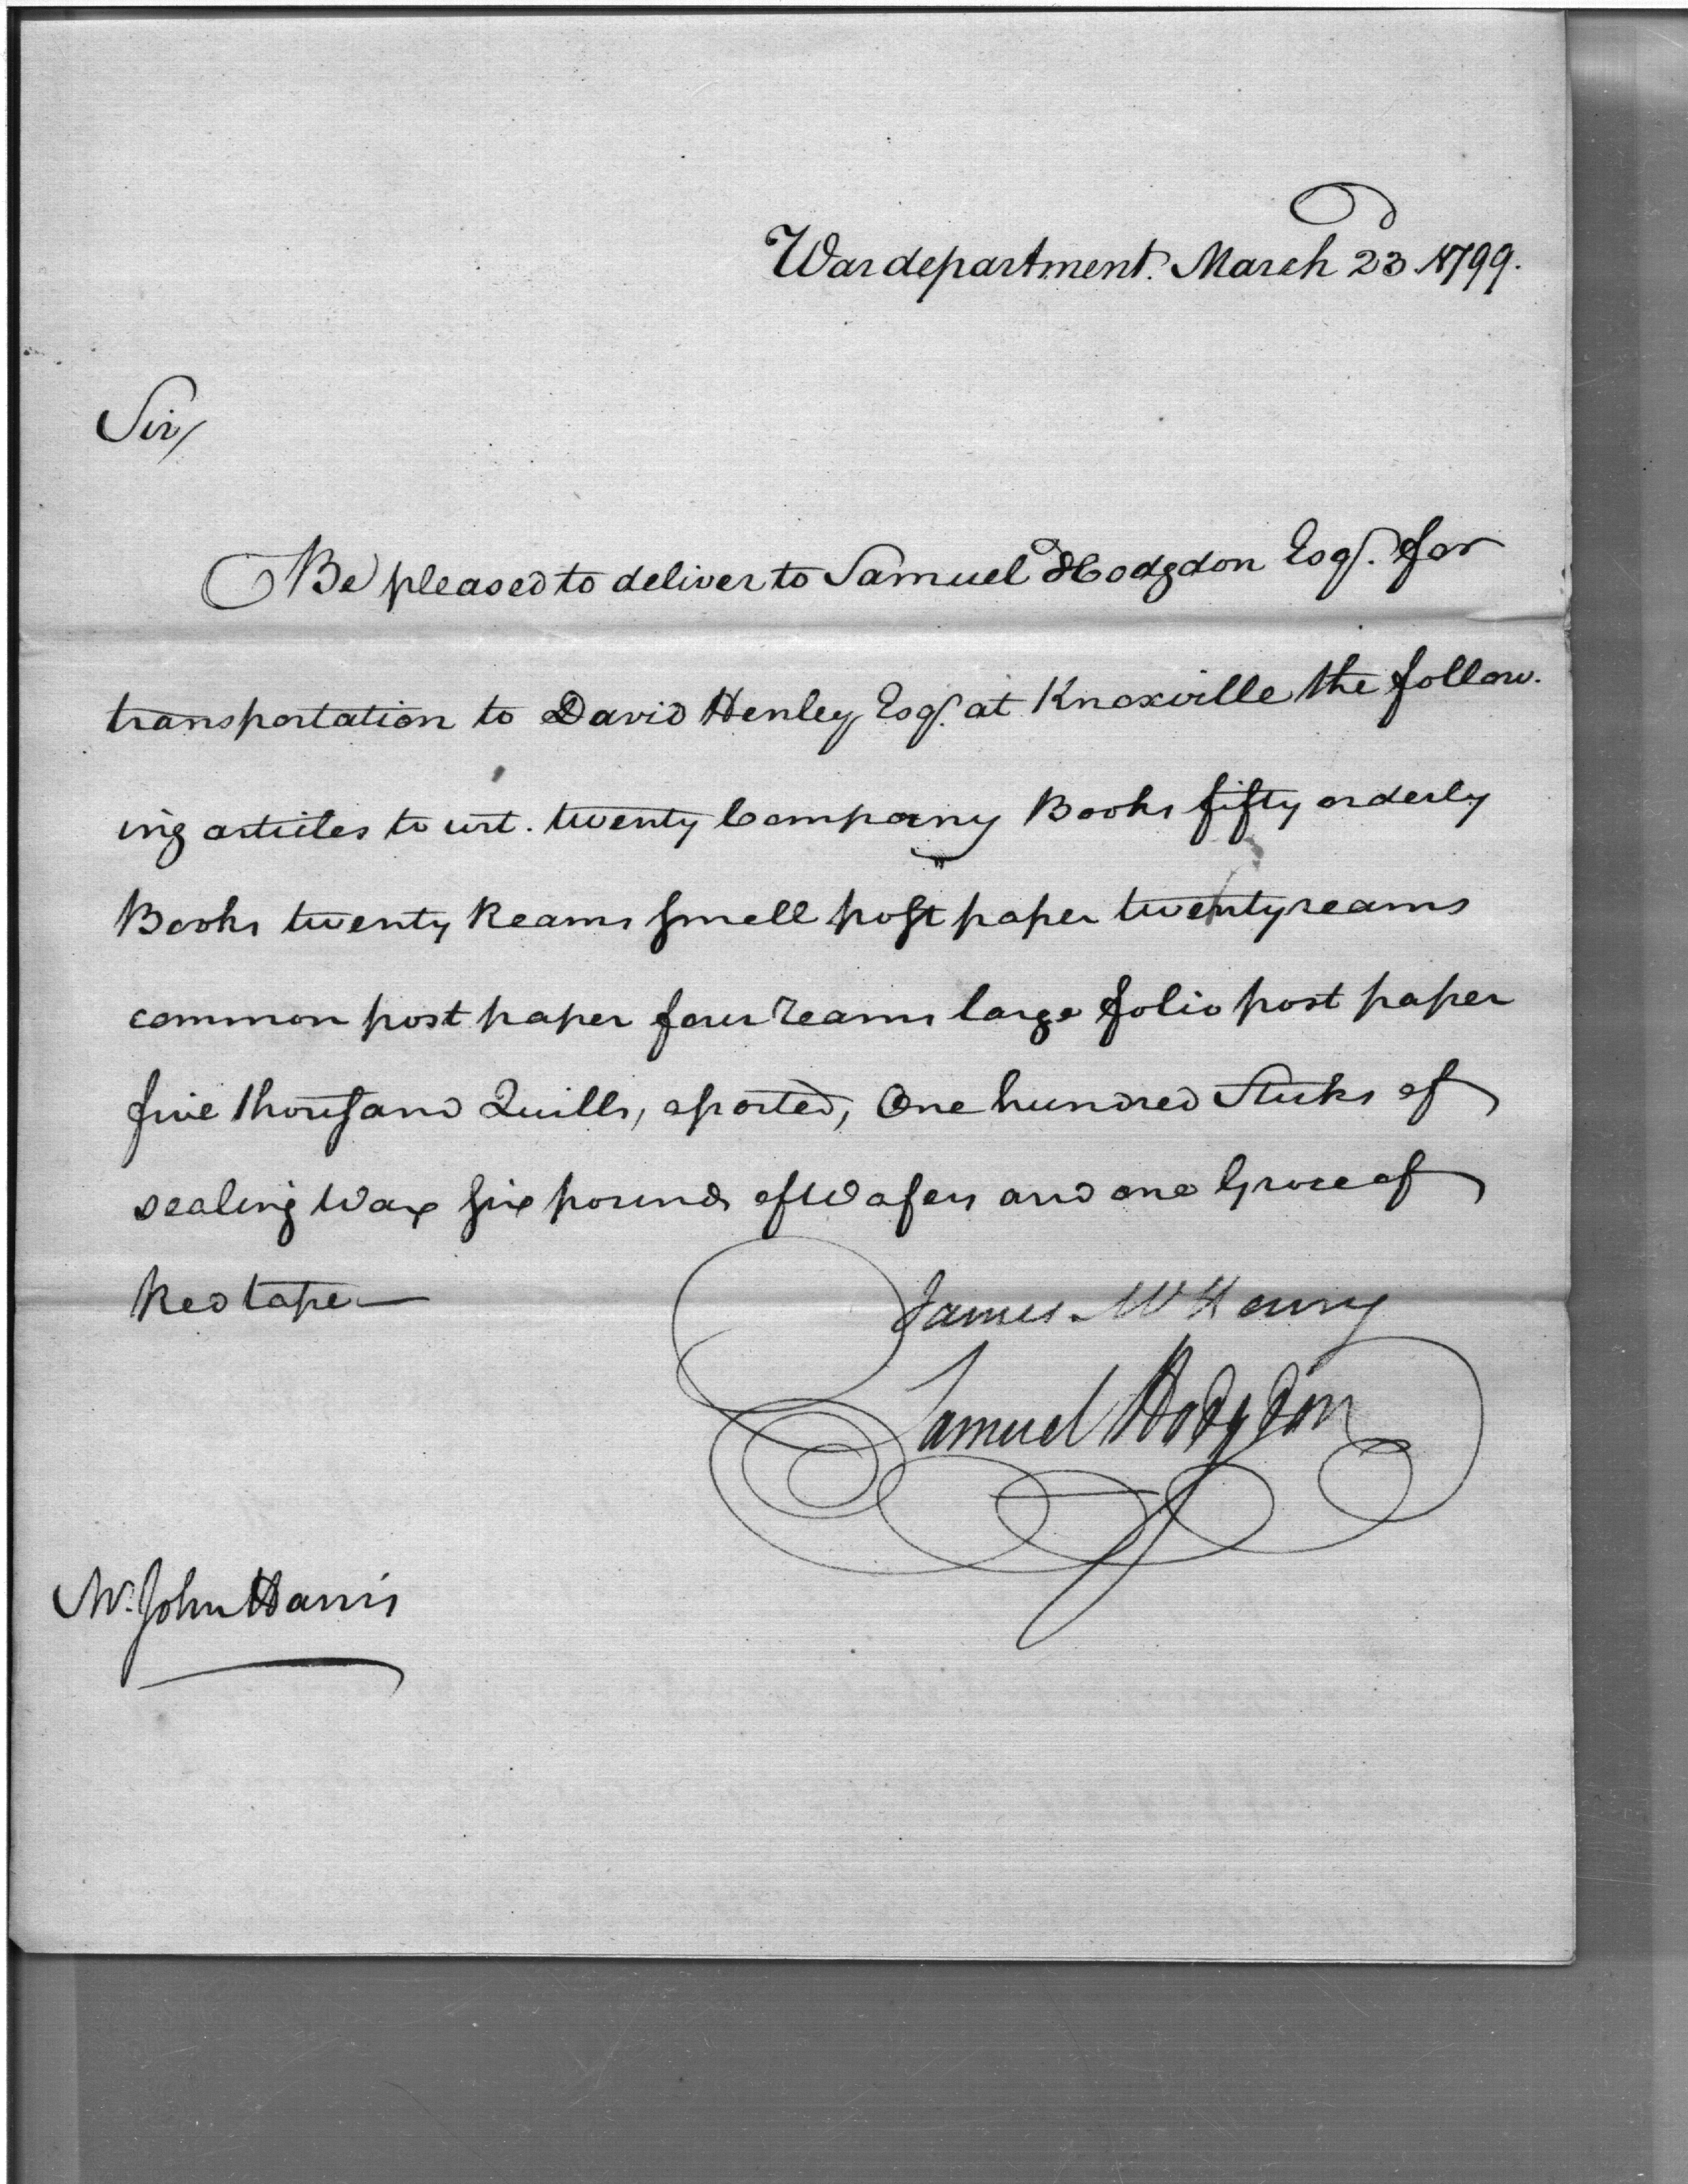 War department. March 23. 1799.
Sir/
Be pleased to deliver to Samuel Hodgdon Esqr. for
transportation to David Henley Esqr. at Knoxville the follow-
ing articles to wit. twenty Company Books fifty orderly
Books twenty Reams small post paper twenty reams
common post paper four reams large folio post paper
five thousand Quills, assorted, One hundred Sticks of
sealing Wax six pounds of Wafers and one Groce of
Red tape—
James McHenry
Samuel Hodgdon
Mr. John Harris